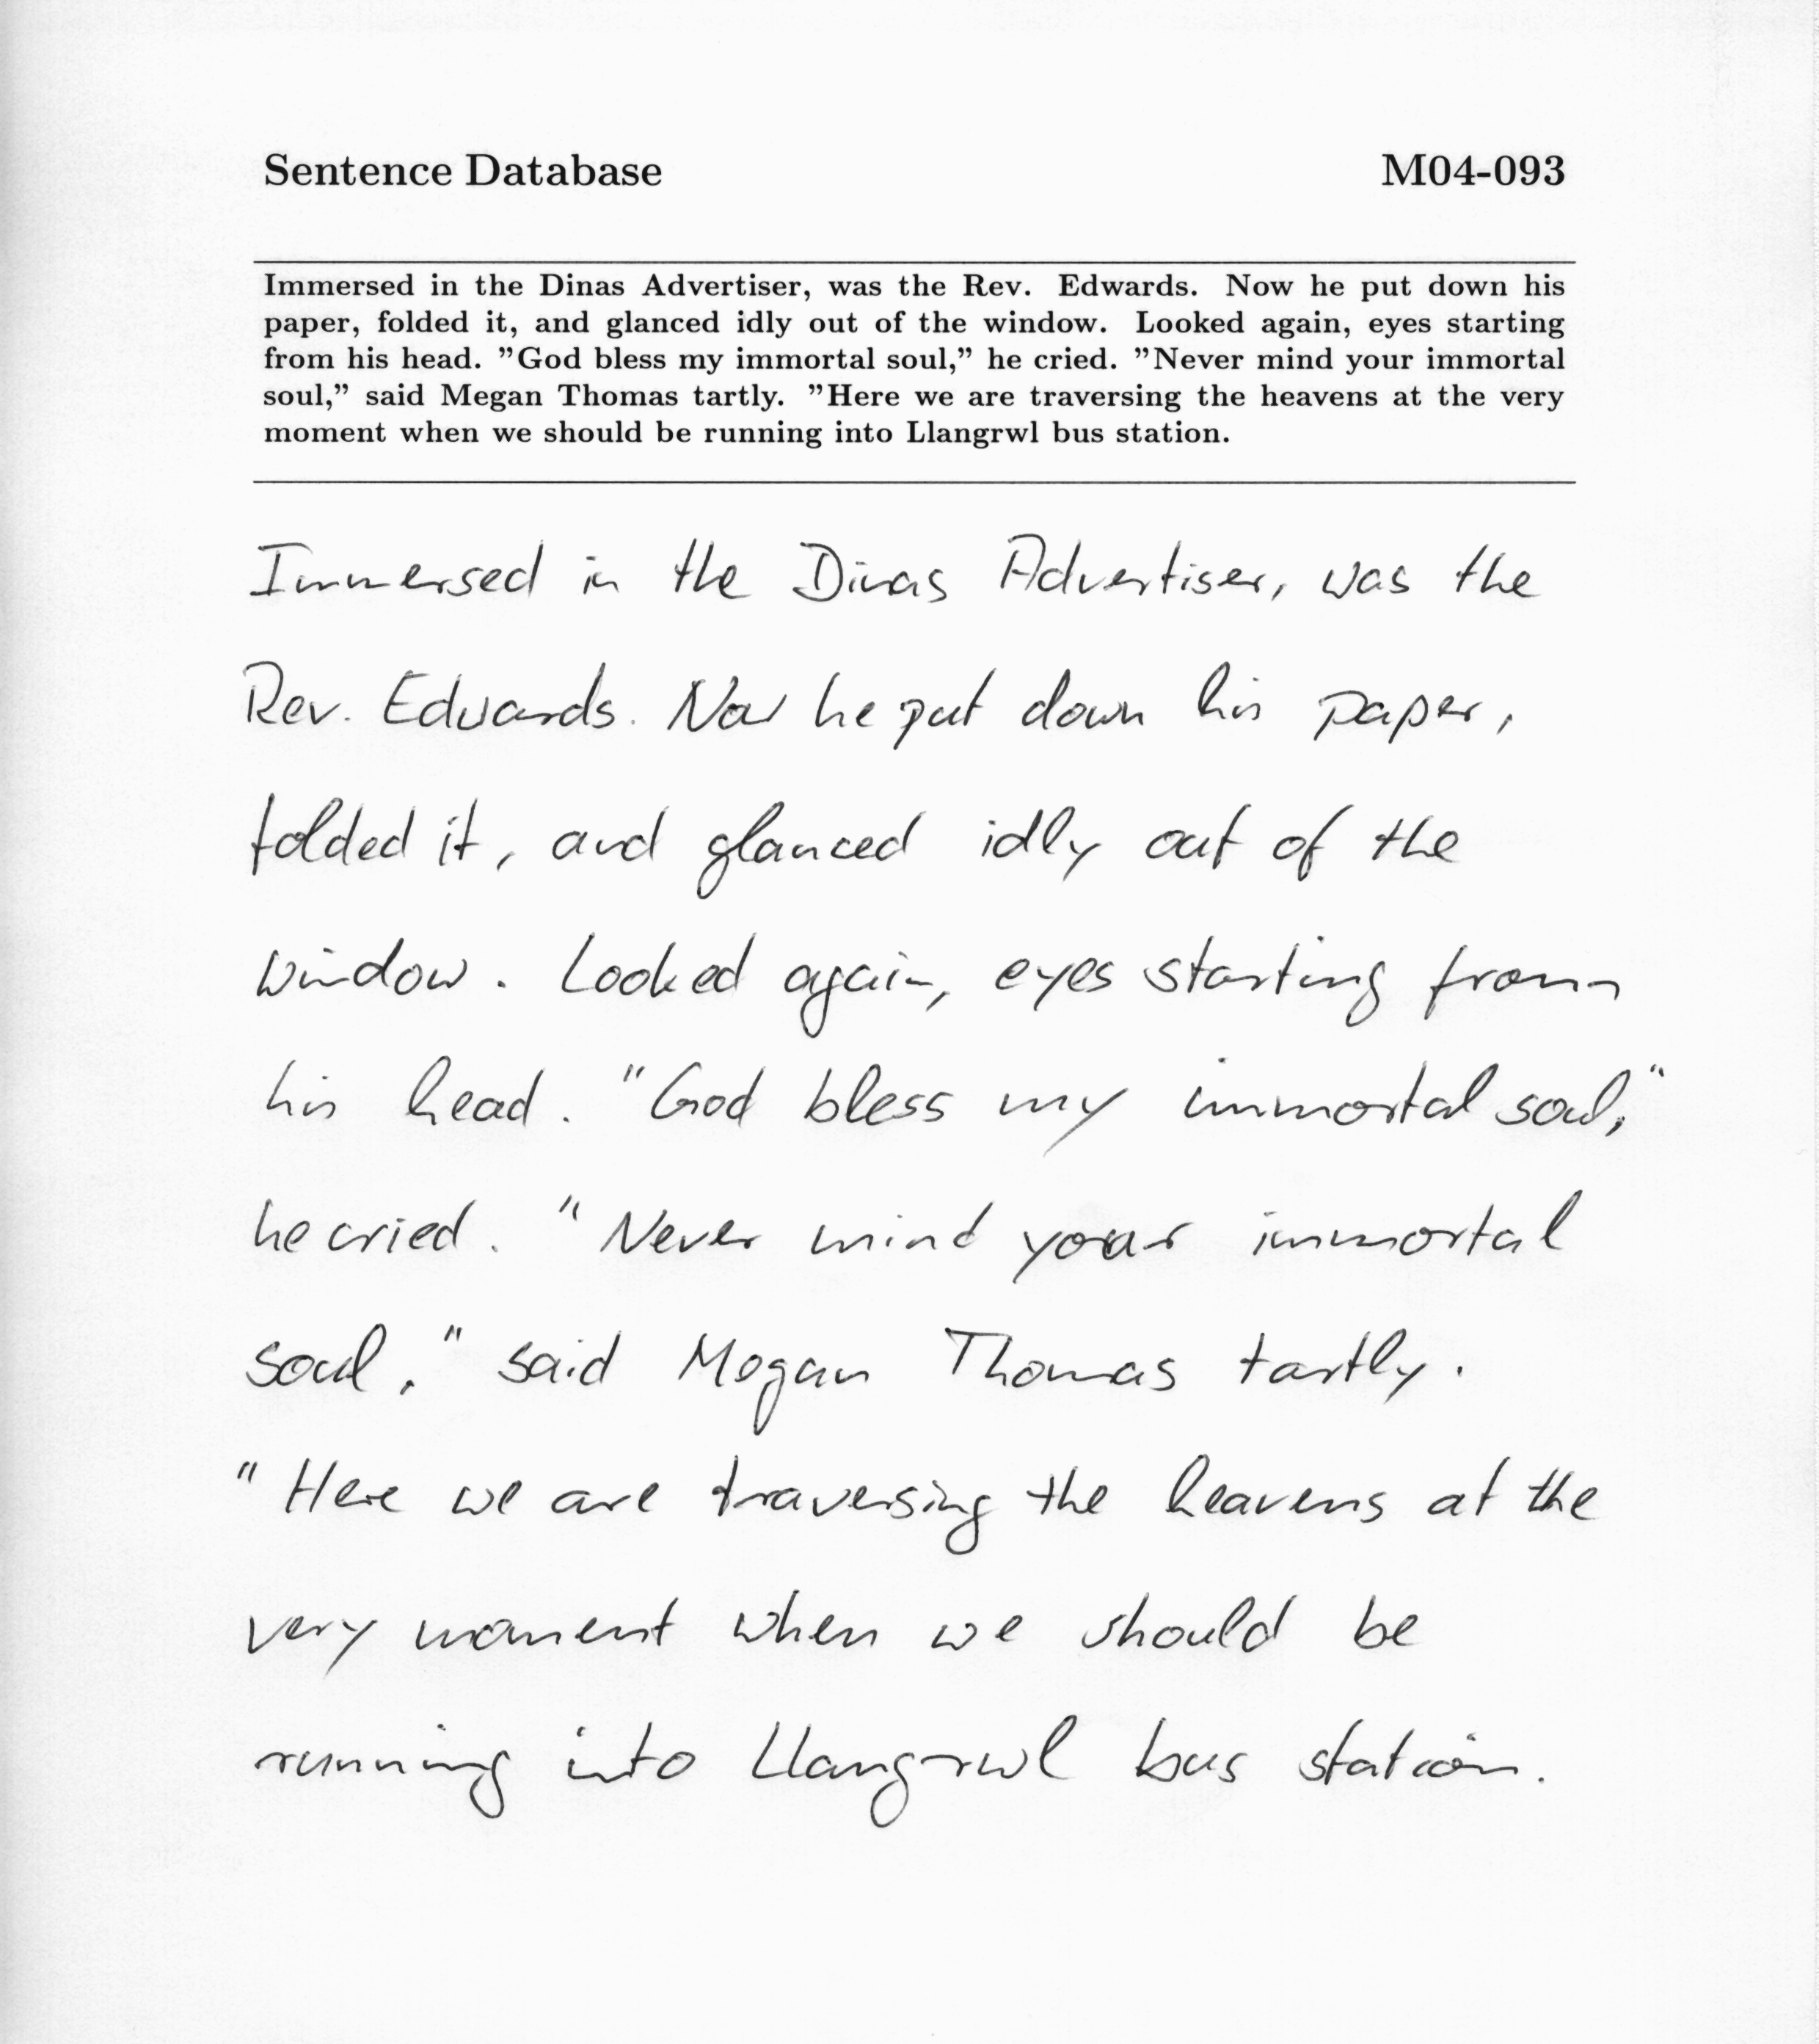 Sentence Database M04-093
Immersed in the Dinas Advertiser, was the Rev. Edwards. Now he put down his
paper, folded it, and glanced idly out of the window. Looked again, eyes starting
from his head. ”God bless my immortal soul,” he cried. ”Never mind your immortal
soul,” said Megan Thomas tartly. ”Here we are traversing the heavens at the very
moment when we should be running into Llangrwl bus station.
Immersed in the Dinas Advertiser, was the
Rev. Edwards. Now he put down his paper,
folded it, and glanced idly out of the
window. Looked again, eyes starting from
his head. "God bless my immortal soul,"
he cried. "Never mind your immortal
soul," said Mogan Thomas tartly.
"Here we are traversing the heavens at the
very moment when we should be
running into Llangrwl bus station.